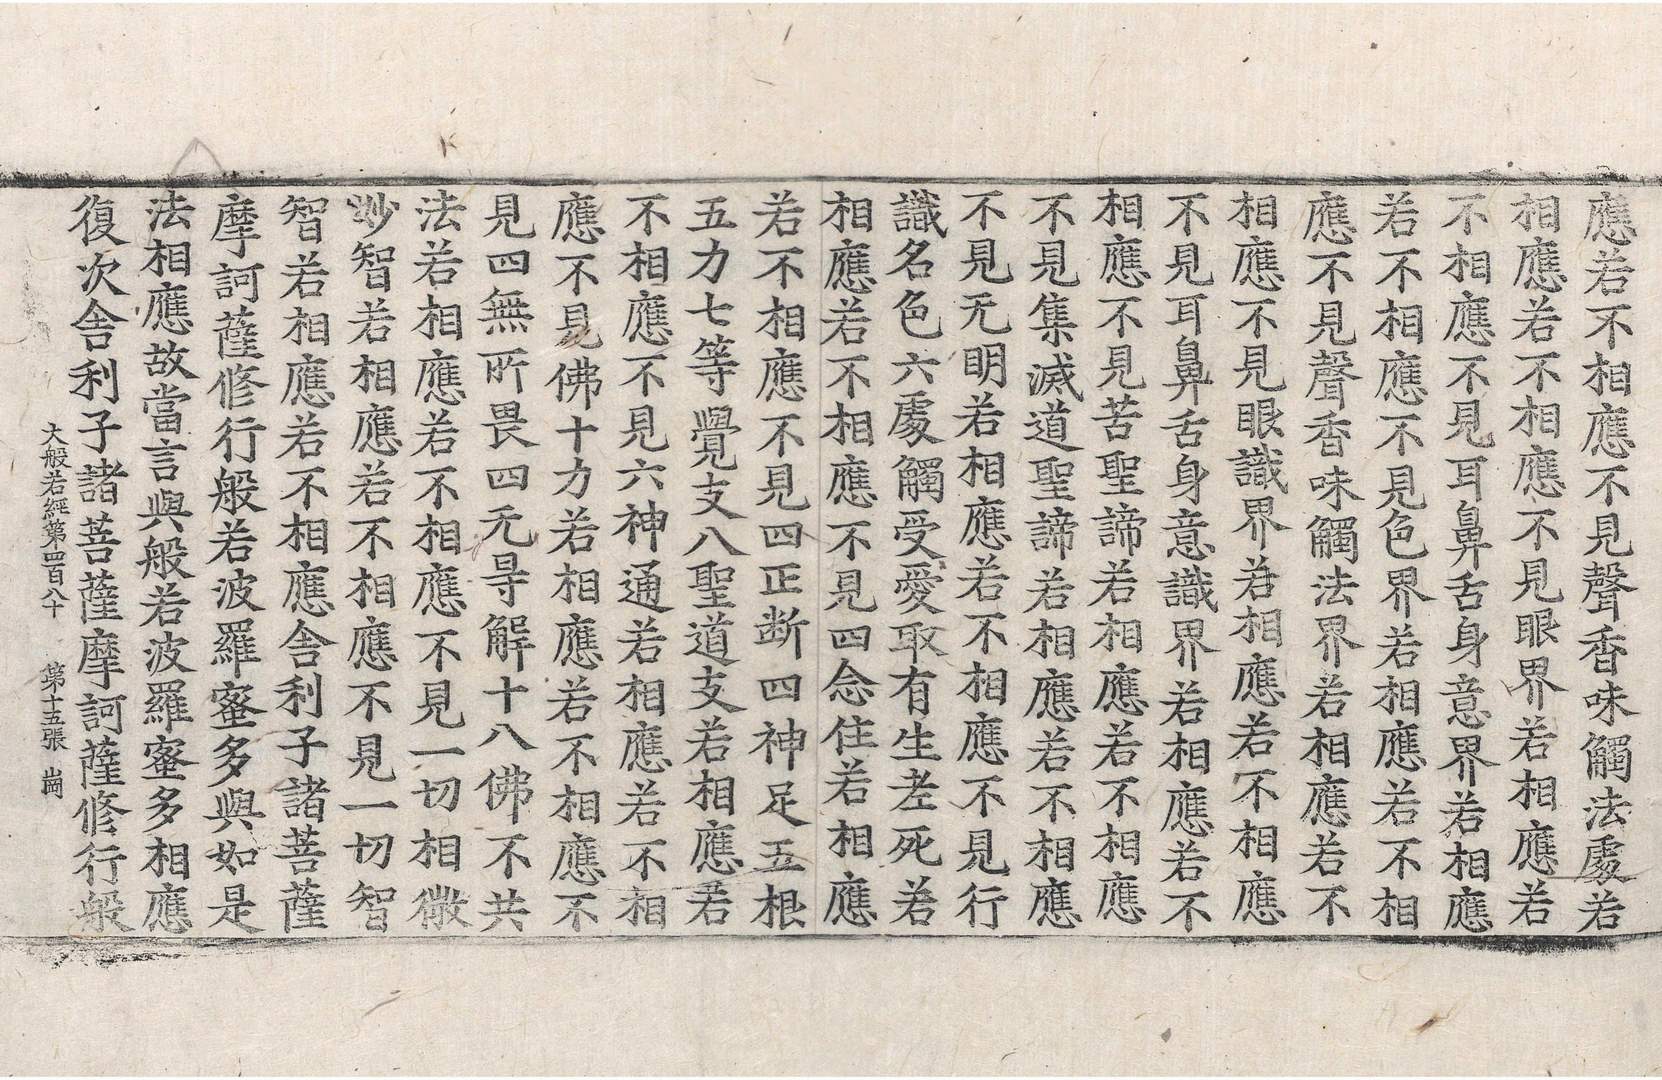 應若不相應不見聲香味觸法處若
相應若不相應不見眼界若相應若
不相應不見耳鼻舌身意界若相應
若不相應不見色界若相應若不相
應不見聲香味觸法界若相應若不
相應不見眼識界若相應若不相應
不見耳鼻舌身意識界若相應若不
相應不見苦聖諦若相應若不相應
不見集滅道聖諦若相應若不相應
不見无明若相應若不相應不見行
識名色六處觸受愛取有生老死若
相應若不相應不見四念住若相應
若不相應不見四正断四神足五根
五力七等覺支八聖道支若相應若
不相應不見六神通若相應若不相
應不見佛十力若相應若不相應不
見四無所畏四无㝵解十八佛不共
法若相應若不相應不見一切相微
妙智若相應若不相應不見一切智
智若相應若不相應舍利子諸菩薩
摩訶薩修行般若波羅蜜多與如是
法相應故當言與般若波羅蜜多相應
復次舍利子諸菩薩摩訶薩修行般
大般若經第四百八十 第十五張 崗